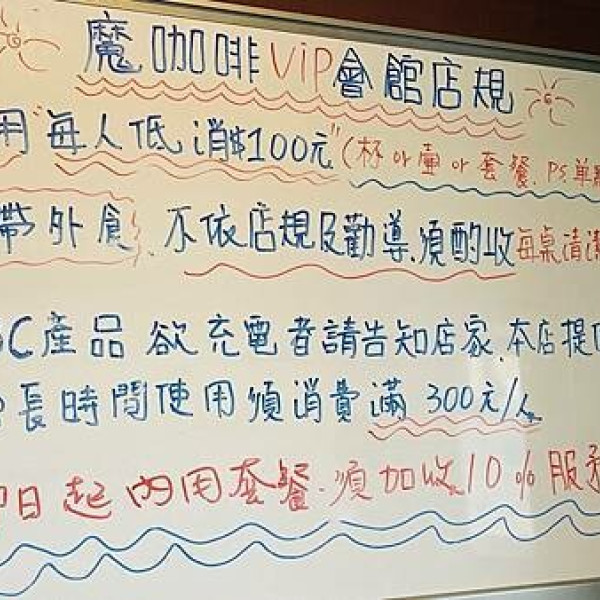 魔咖啡VIP會館店規
用"每人低消$100元"(杯or壷or套餐、PS單
帶外食、不依店規及勸導、須酌收每桌清潔
C產品 欲充電者請告知店家、本店提
長時間使用須消費滿 300元/人
日起內用套餐、須加收10%服務